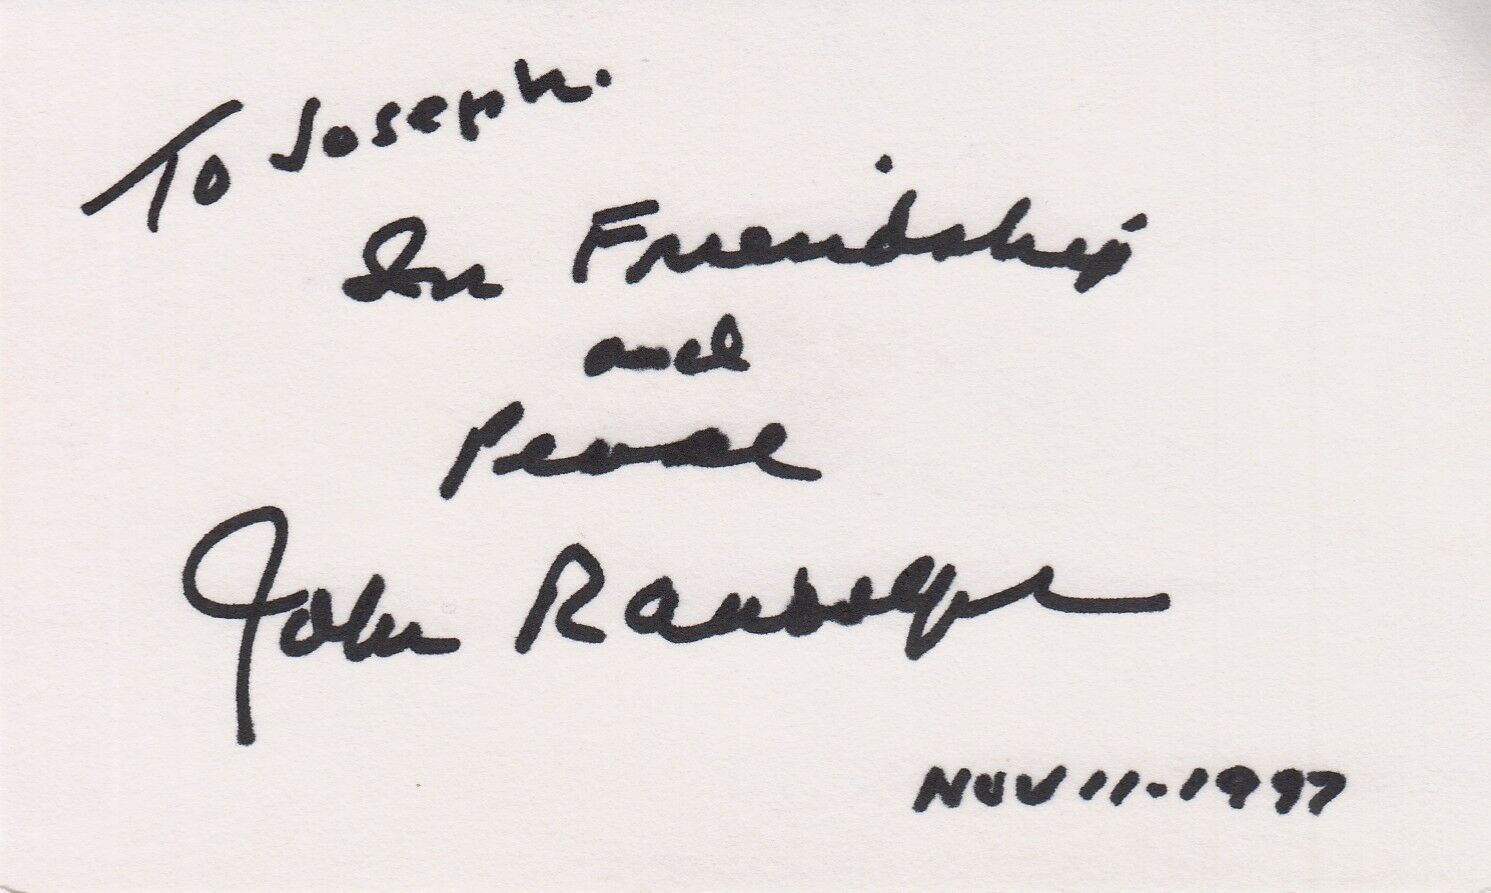 To Joseph.
In Friendship
and
Peace
John Randolph
NOV 11-1997